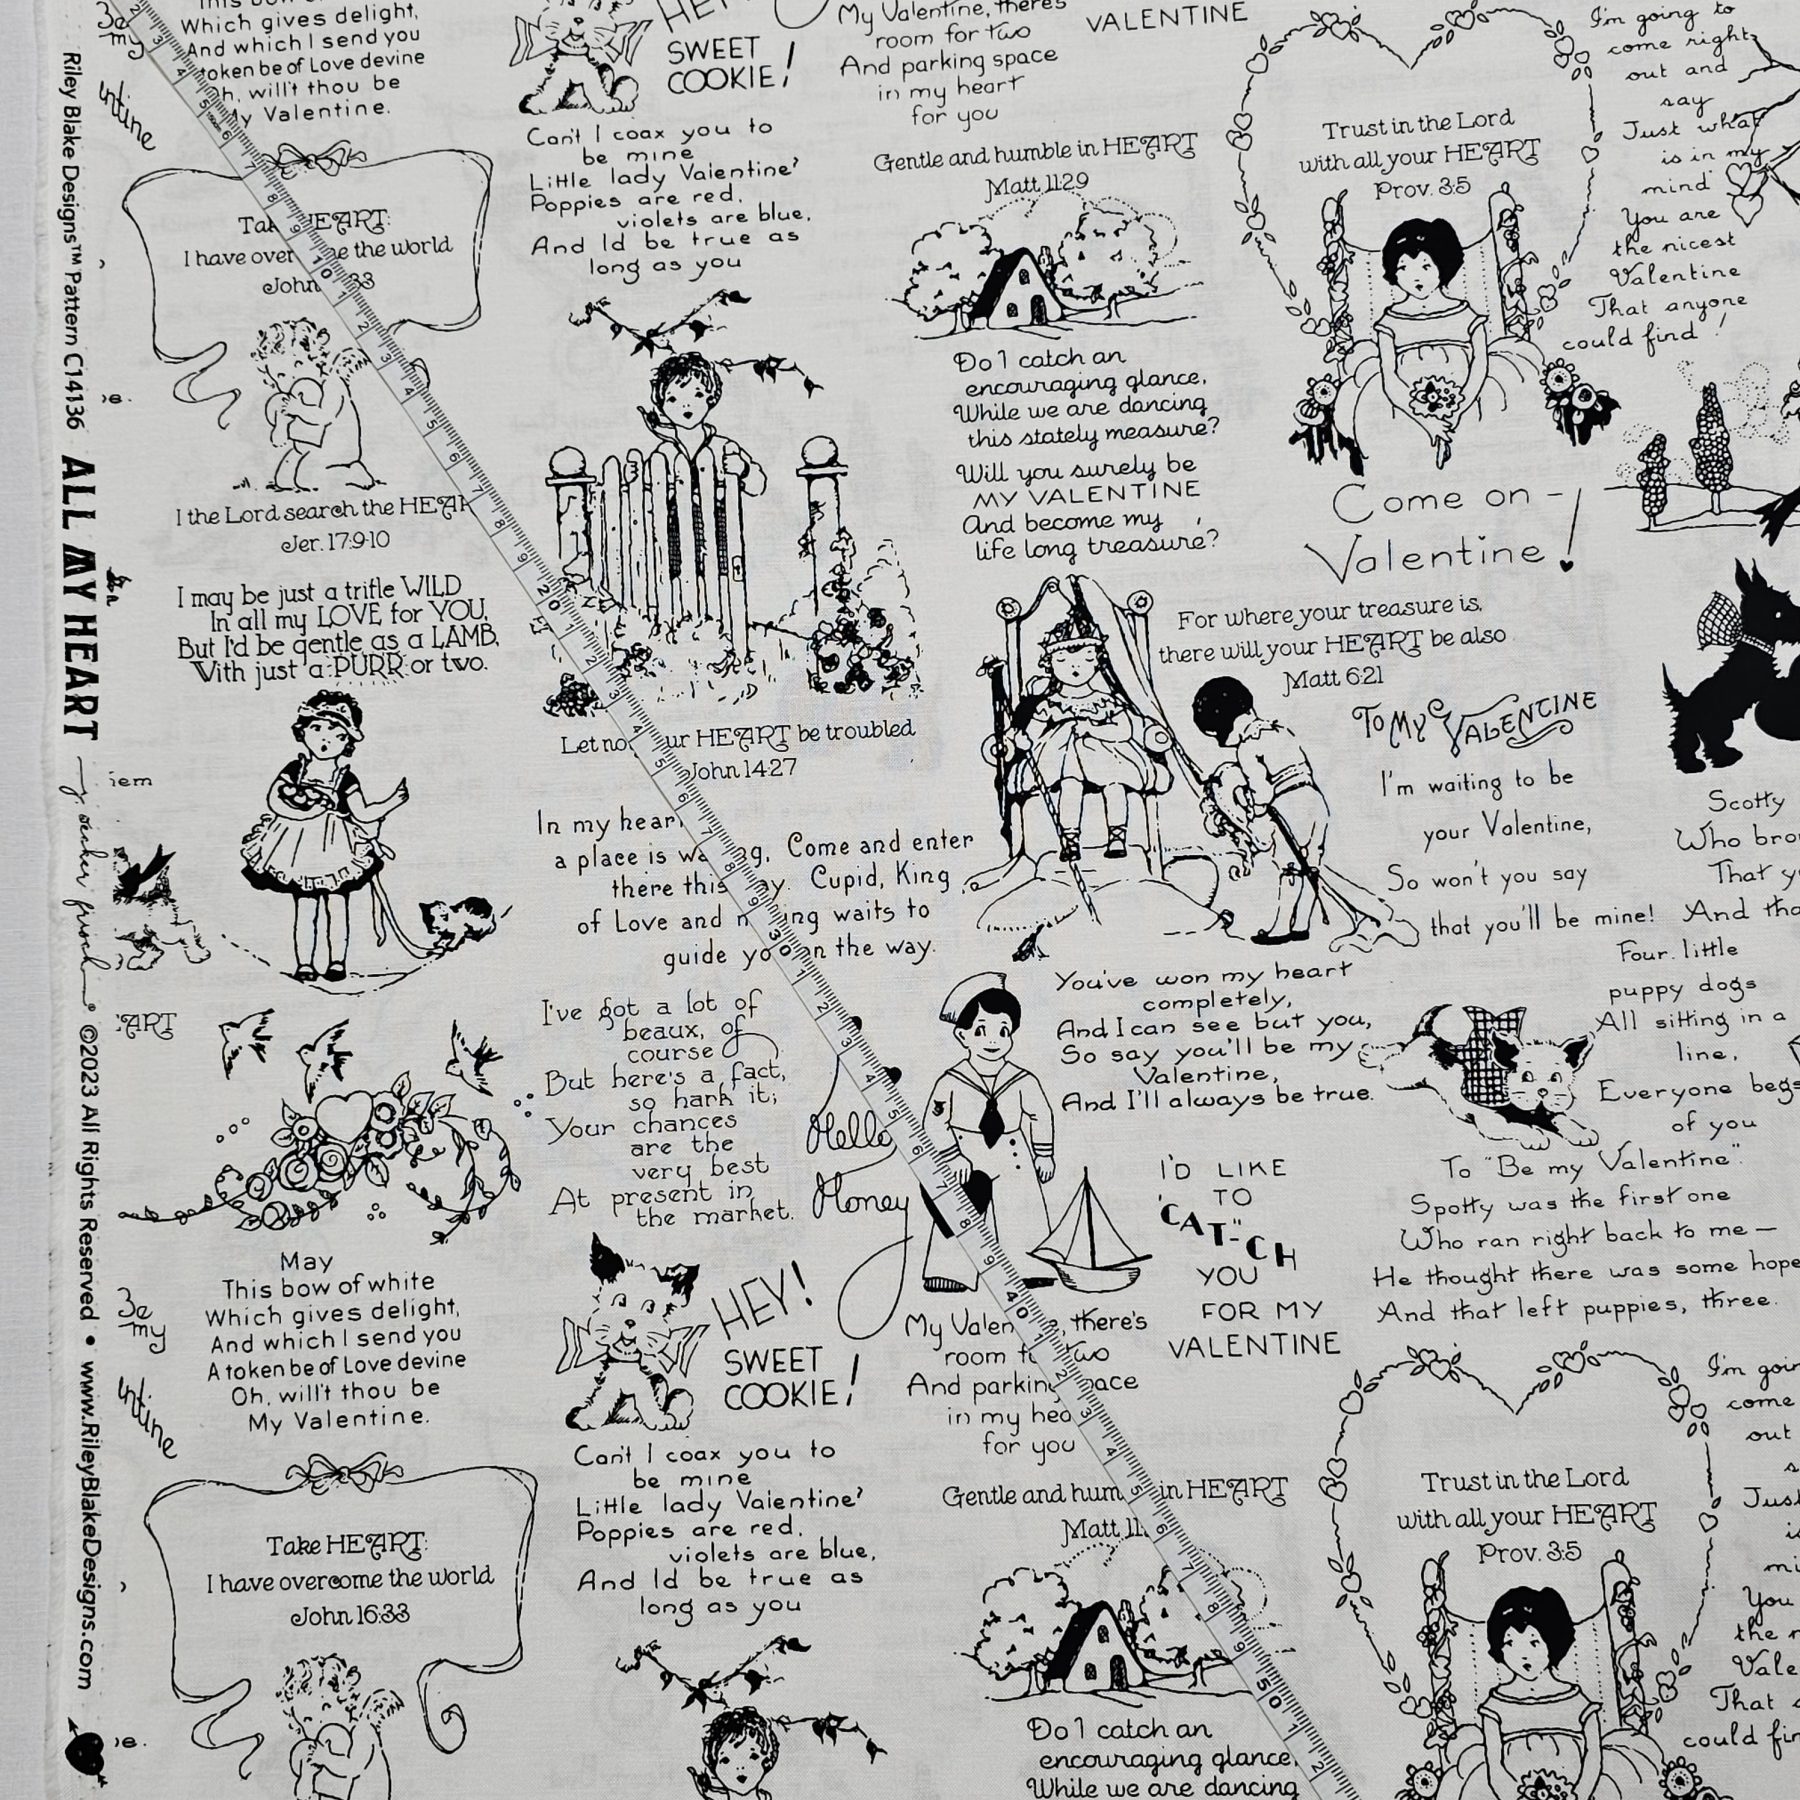 Riley Blake Designs™ Pattern C14136 ALL MY HEART ©2023 All Rights Reserved • www.RileyBlakeDesigns.com
Which gives delight,
And which I send you
token be of Love devine
Oh, will't thou be
My Valentine.
3e
my
intine
HEART:
I have over the world
John
I the Lord search the
Jer. 17:9-10
I may be just a trifle WILD
In all my LOVE for YOU,
But I'd be gentle as a LAMB,
With just a PURR or two.
iem
:ART
May
This bow of white
Which gives delight,
And which I send you
A token be of Love devine
Oh, will't thou be
My Valentine.
3e
my
intine
Take HEART:
I have overcome the world
John 16:33
SWEET
COOKIE!
Can't I coax you to
be mine
Little lady Valentine?
Poppies are red,
violets are blue,
And Id be true as
long as you
Let HEART be troubled
John 14:27
In my
a place is Come and enter
there this Cupid, King
of Love and waits to
guide the way.
I've got a lot of
beaux, of
course
But here's a fact,
so hark it;
Your chances
are the
very best
At present in
the market.
Hello
Honey
HEY!
SWEET
COOKIE!
Can't I coax you to
be mine
Little lady Valentine?
Poppies are red,
violets are blue,
And Id be true as
long as you
My Valentine, there's
room for two
And parking space
in my heart
for you
VALENTINE
Gentle and humble in HEART
Matt 11:29
Do I catch an
encouraging glance,
While we are dancing
this stately measure?
Will you surely be
MY VALENTINE
And become my
life long treasure?
For where your treasure is,
there will your HEART be also
Matt 6:21
You've won my heart
completely,
And I can see but you,
So say you'll be my
Valentine,
And I'll always be true.
I'D LIKE
TO
"CAT"-CH
YOU
FOR MY
VALENTINE
My there's
room two
And
in my
for you
Gentle and in HEART
Matt
Do I catch an
encouraging glance,
While we are dancing
Trust in the Lord
with all your HEART
Prov. 3:5
I'm going to
come right
out and
say
Just what
is in my
mind
You are
the nicest
Valentine
That anyone
could find!
Come on -
Valentine!
To My Valentine
I'm waiting to be
your Valentine,
So won't you say
that you'll be mine!
Scotty
Who
That
And
Four little
puppy dogs
All sitting in a
line,
Everyone begs
of you
To "Be my Valentine"
Spotty was the first one
Who ran right back to me —
He thought there was some hope
And that left puppies, three.
Trust in the Lord
with all your HEART
Prov. 3:5
I'm
come
out
You
the
That
could